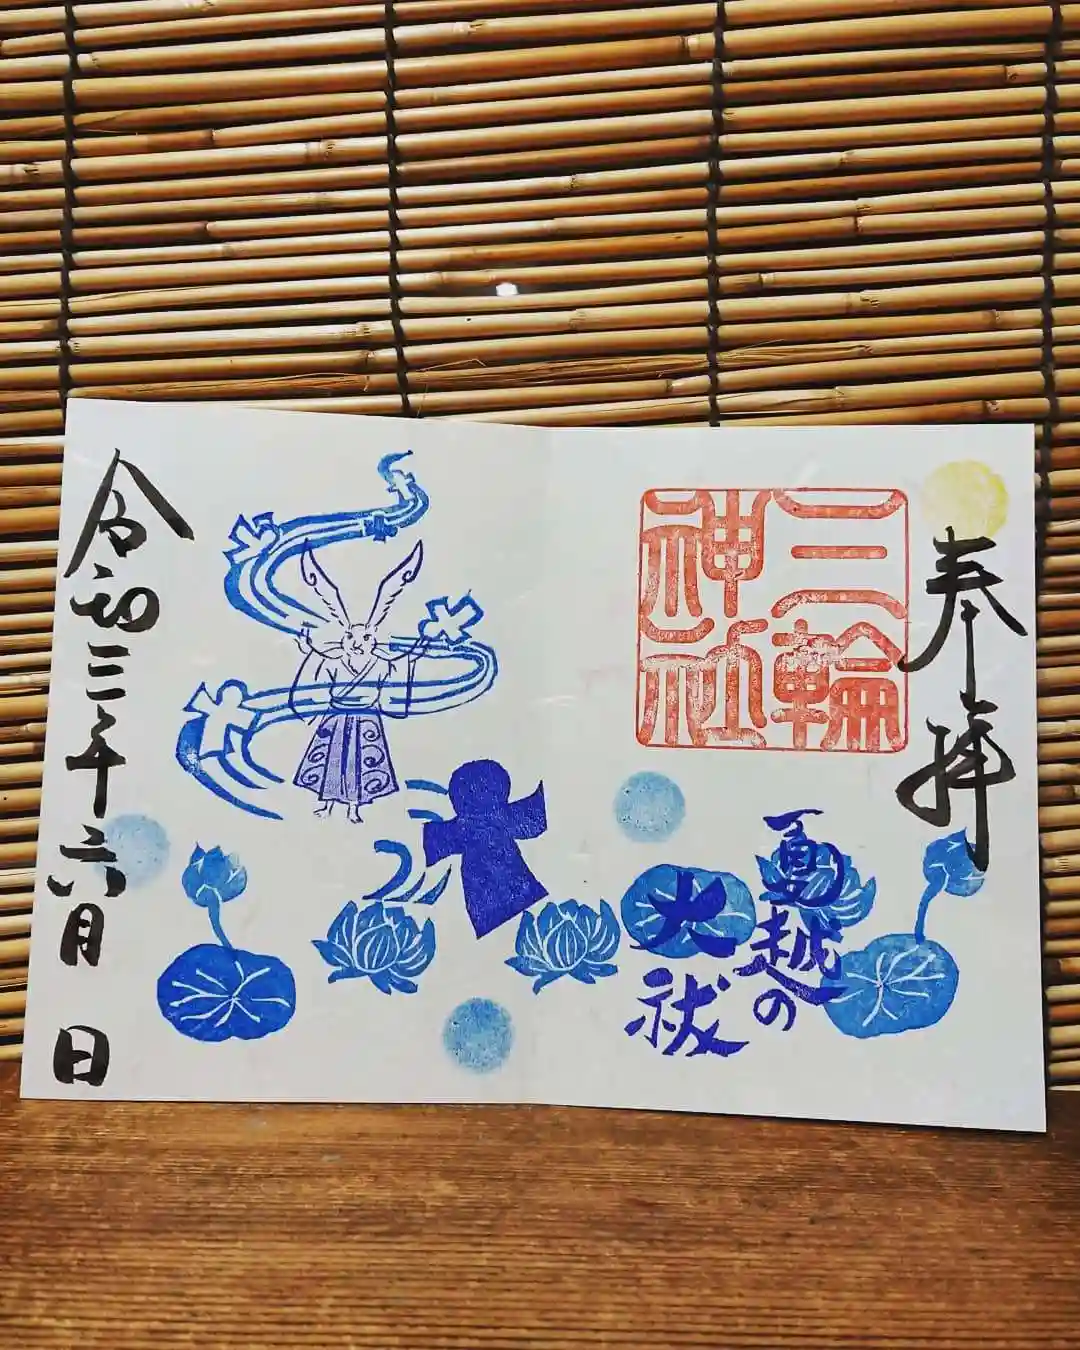 奉拝
三輪
神社
夏越の
大祓
令和三年六月 日